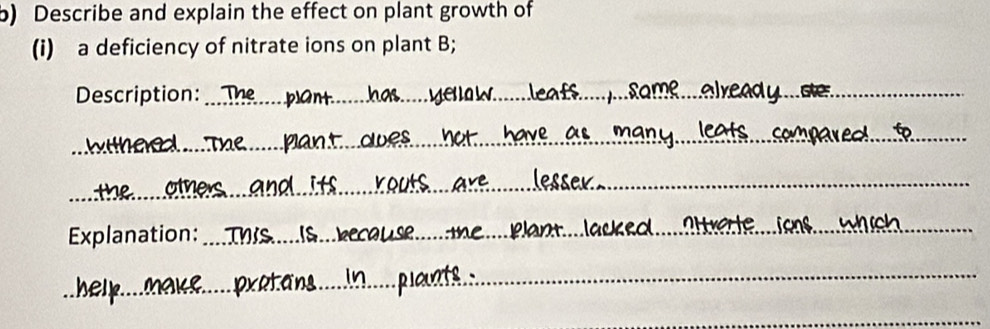 b) Describe and explain the effect on plant growth of
(i) a deficiency of nitrate ions on plant B;
Description: The plant has yellow leafs, some already
withered. The plant does not have as many leafs compared to
the others and its routs are lesser.
Explanation: This is because the plant lacked nitrate ions which
help make proteins in plants.